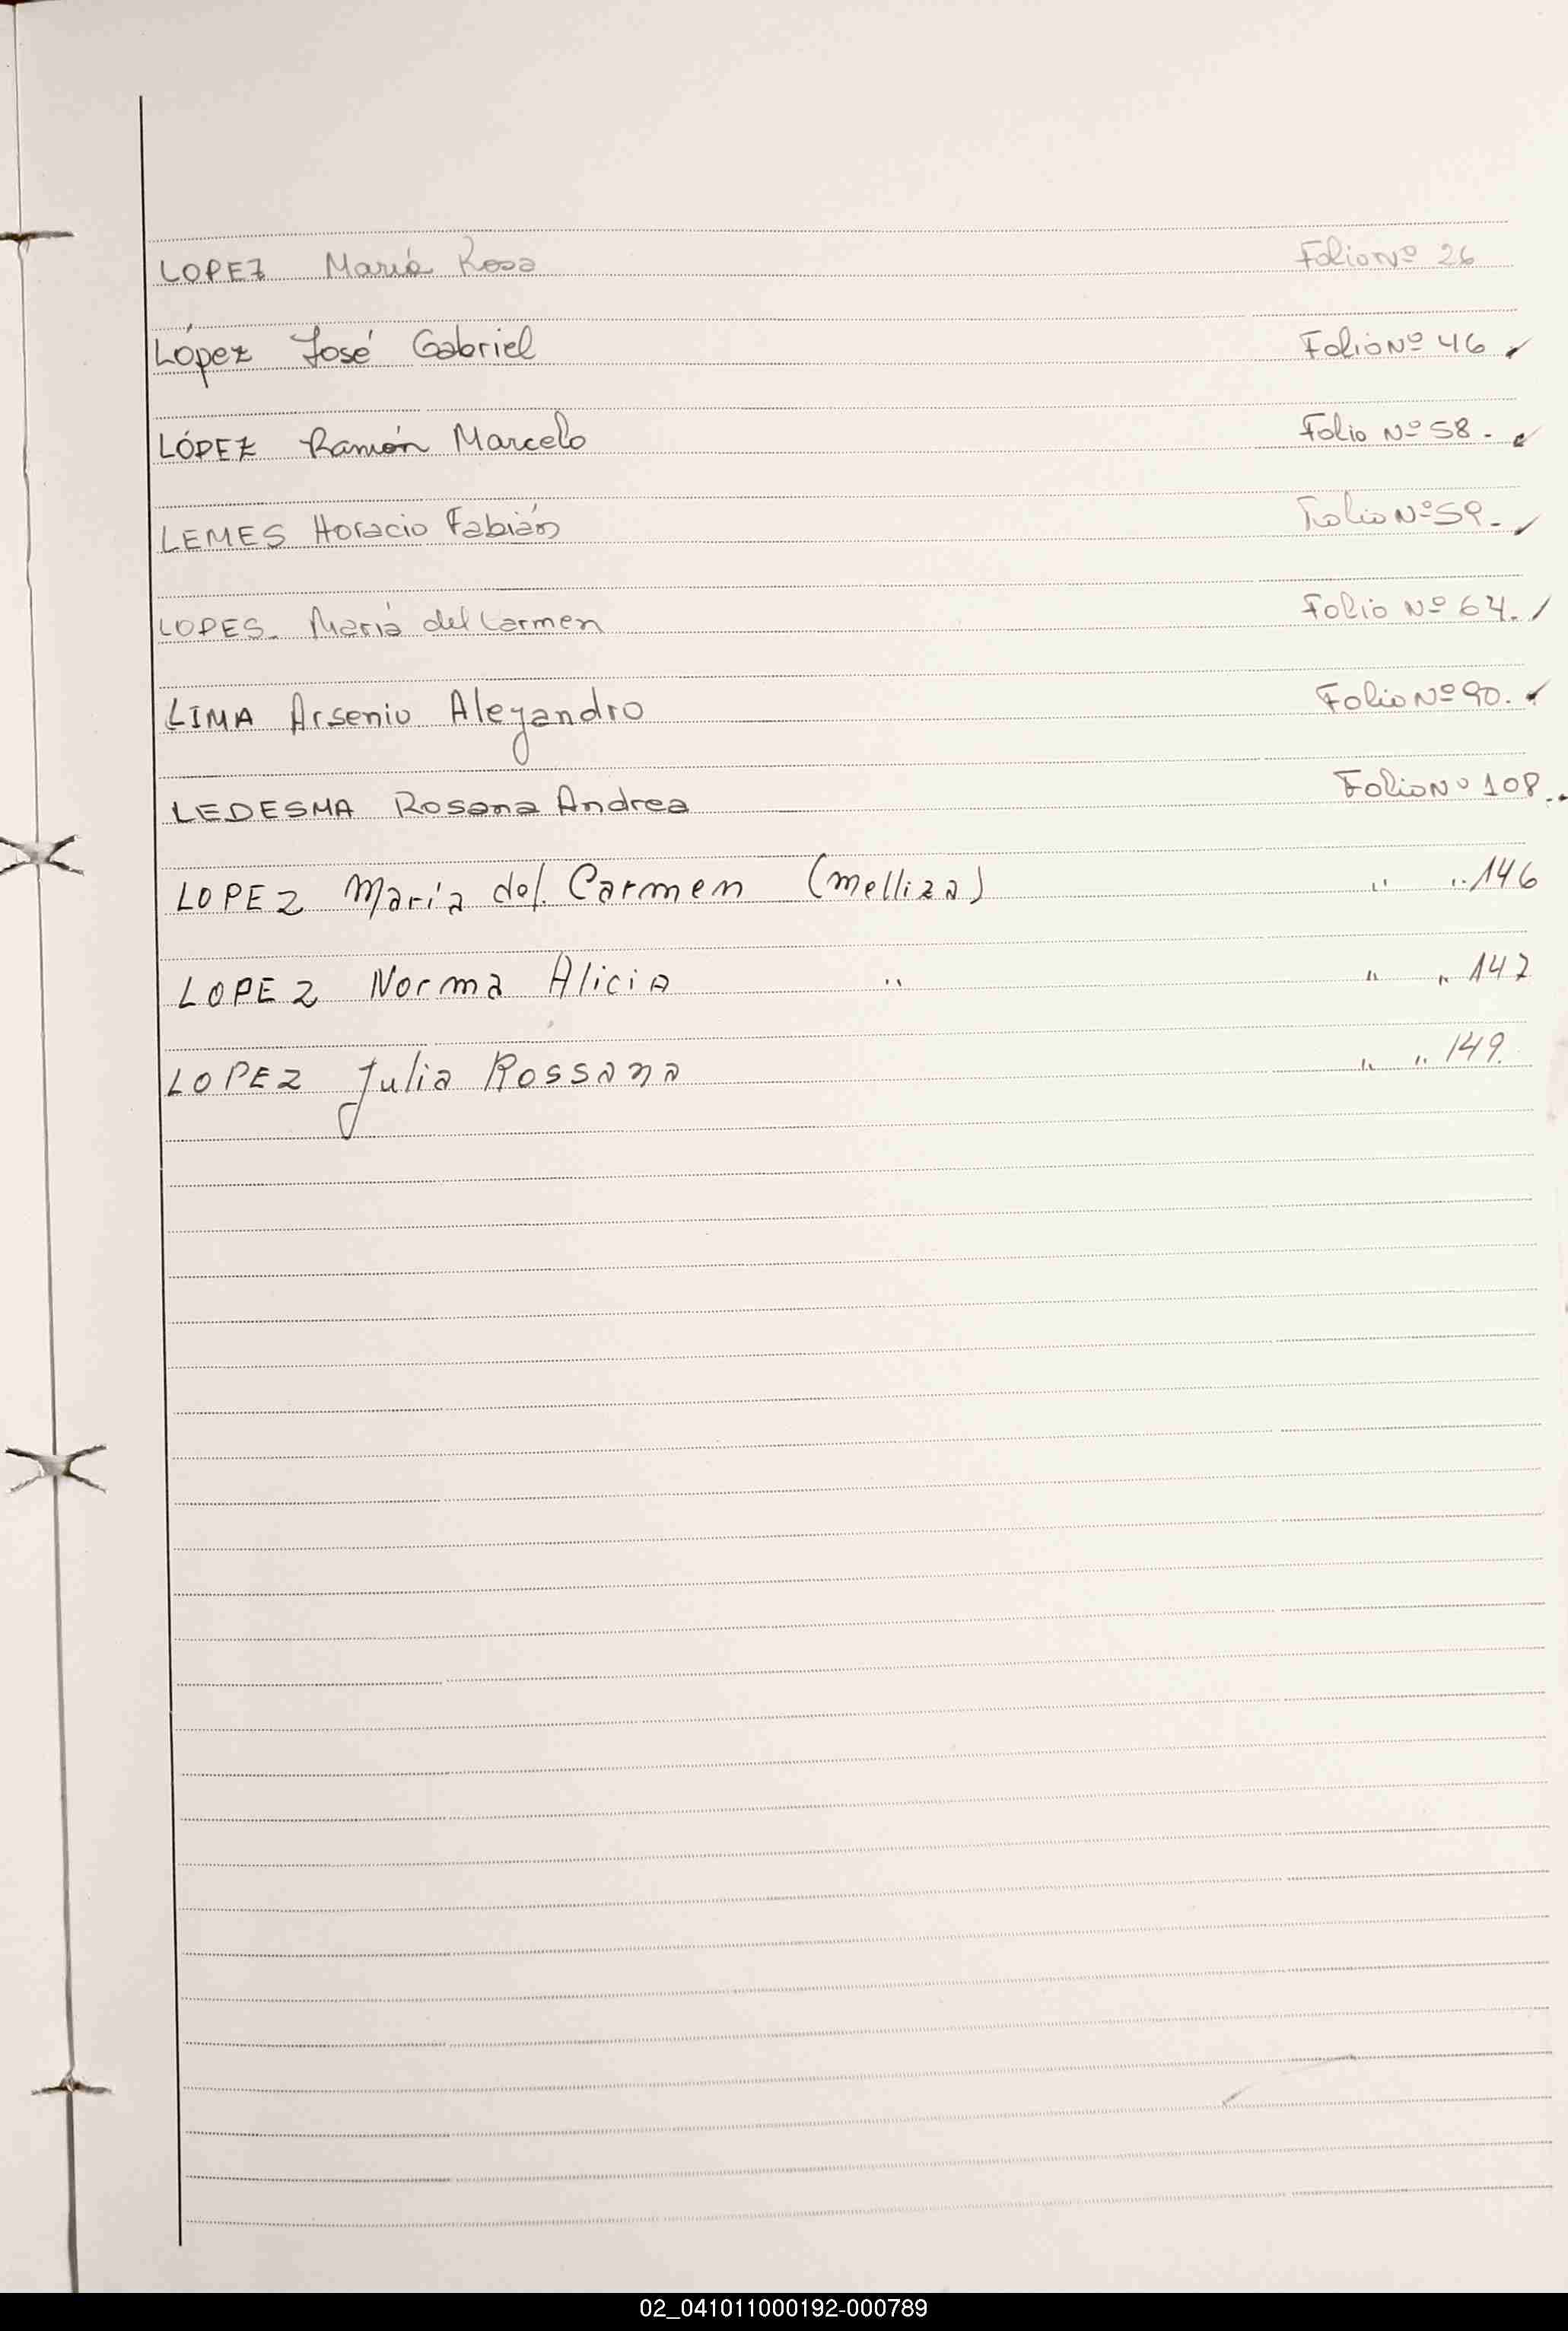 LOPEZ María Rosa Folio Nº 26
López José Gabriel Folio Nº 46
LÓPEZ Ramón Marcelo Folio Nº 58.
LEMES Horacio Fabián Folio Nº 59.
LOPES María del Carmen Folio Nº 64.
LIMA Arsenio Aleyandro Folio Nº 90.
LEDESMA Rosana Andrea Folio Nº 108.
LOPEZ María del Carmen (melliza) " " 146
LOPEZ Norma Alicia " " " 147
LOPEZ Julia Rossana " " 149.
02_041011000192-000789